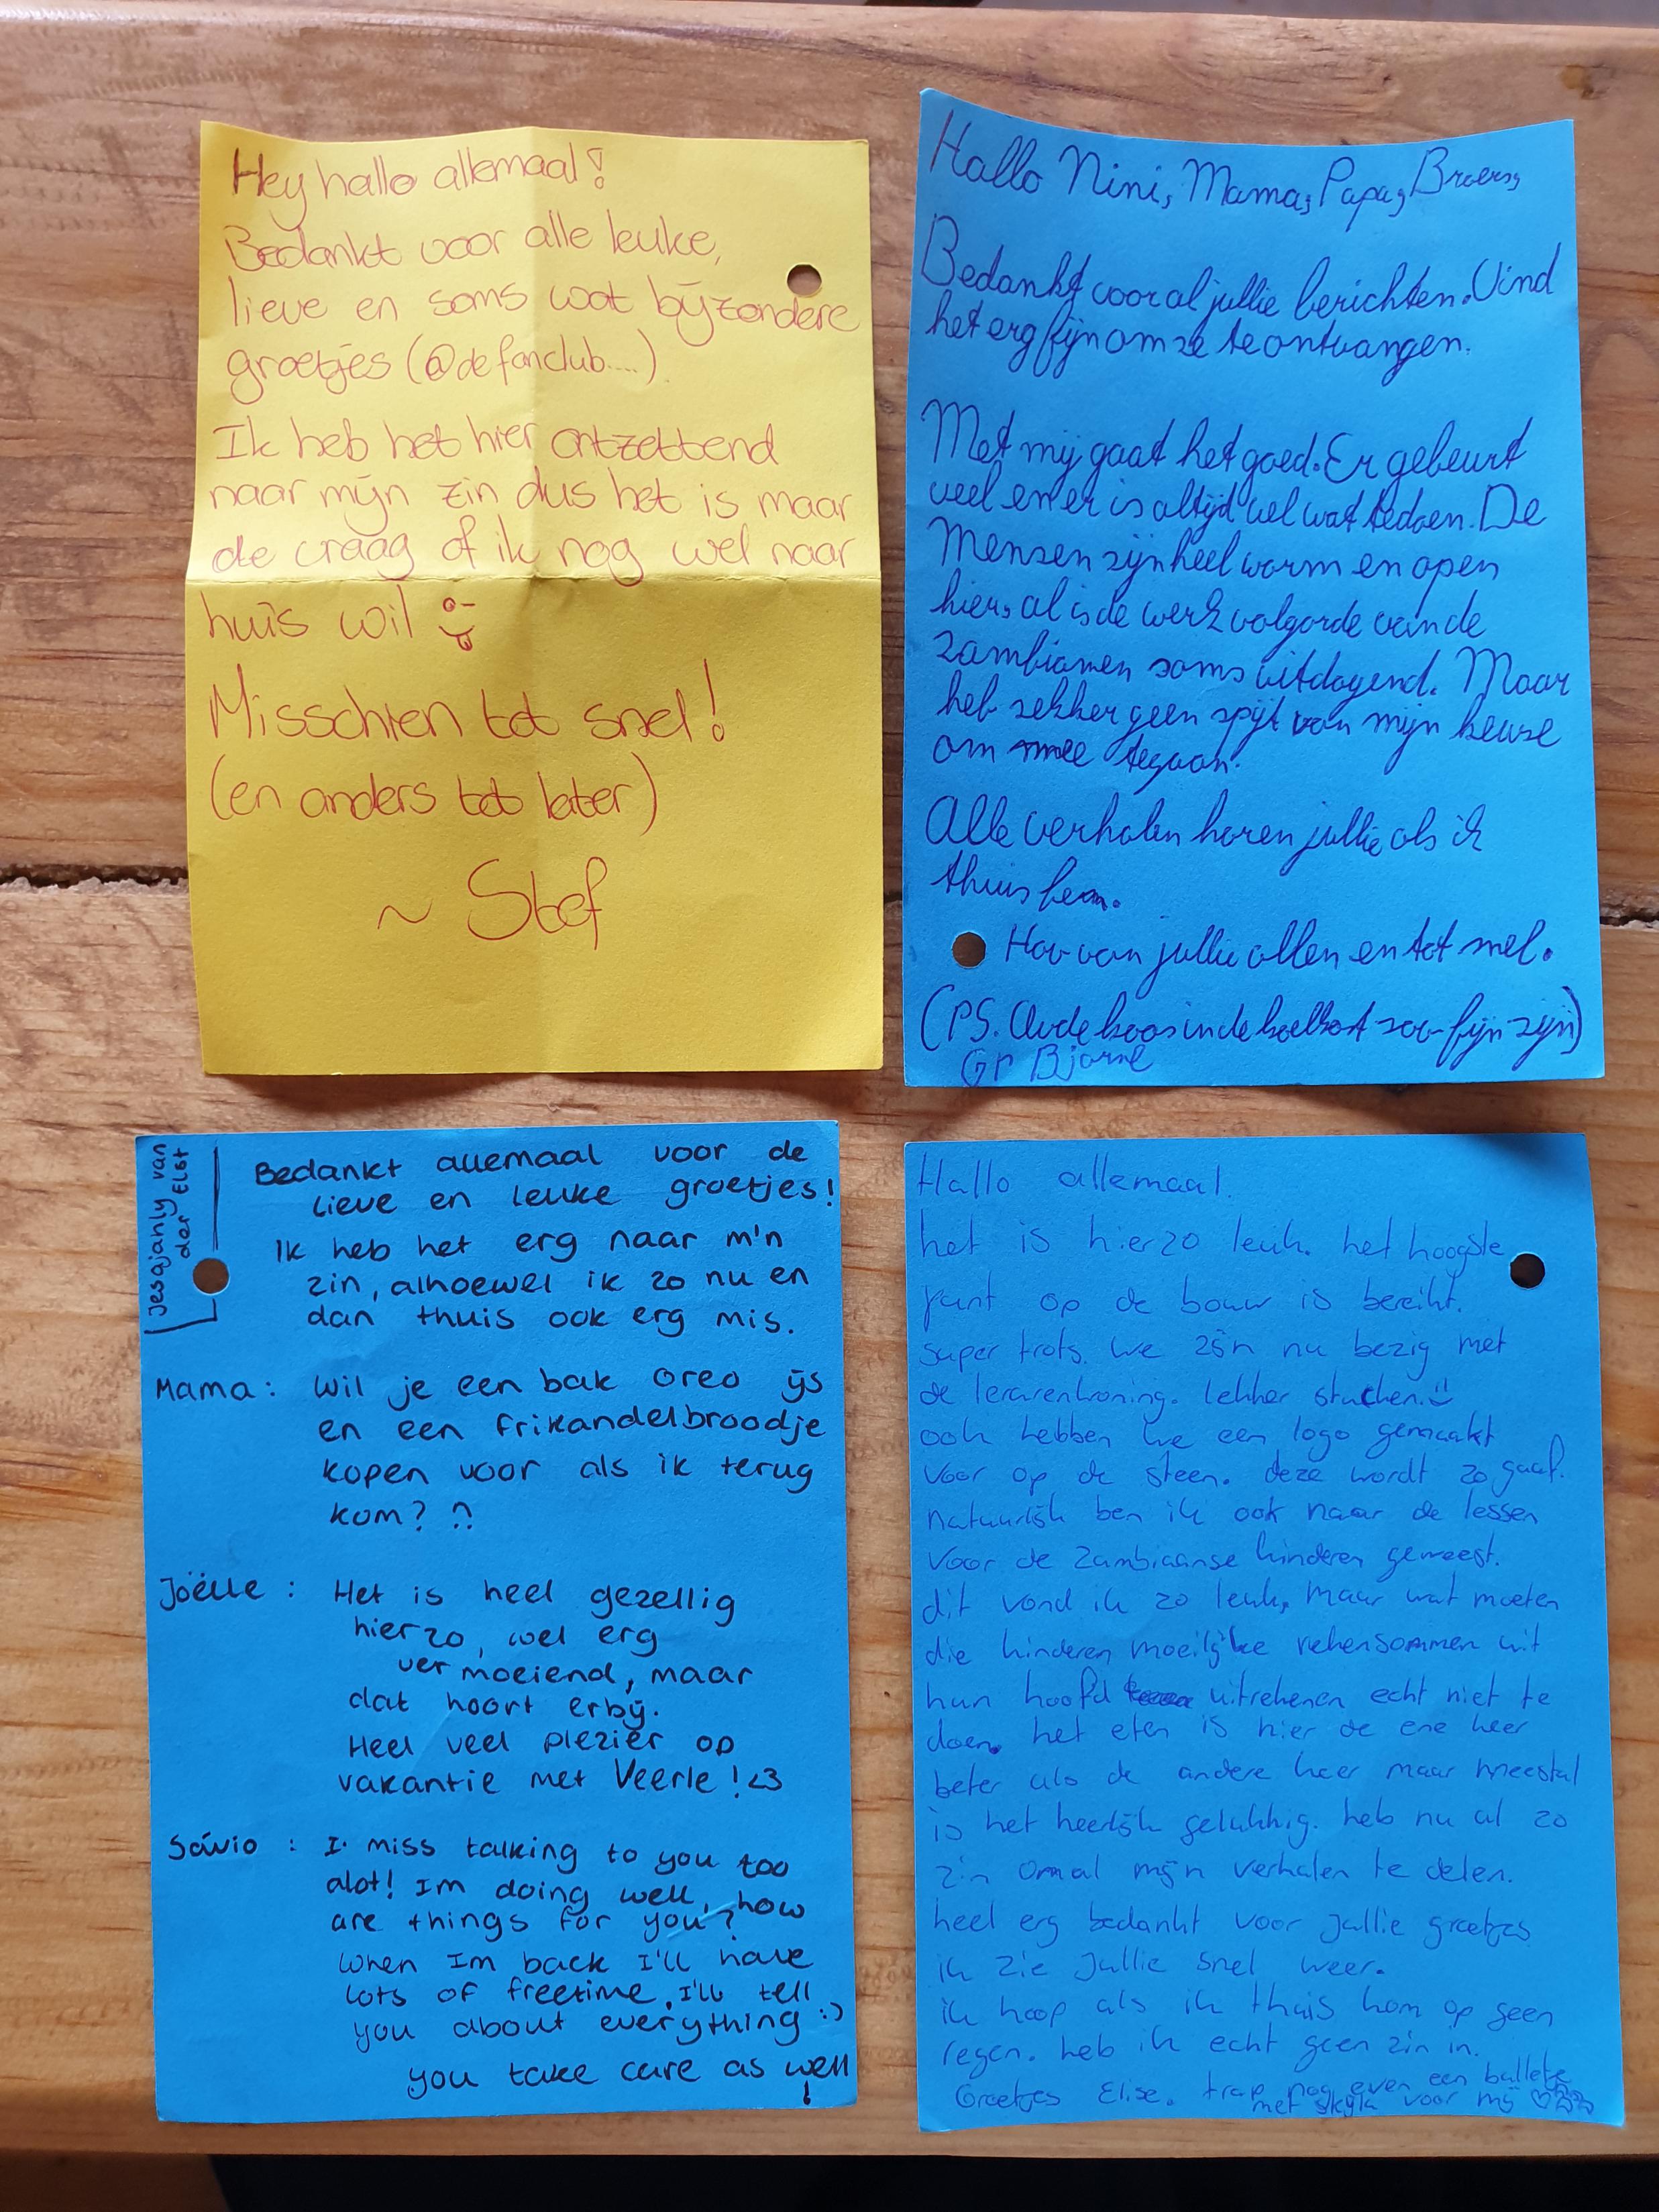 Hey hallo allemaal!
Bedankt voor alle leuke,
lieve en soms wat bijzondere
groetjes (@defanclub....)
Ik heb het hier ontzettend
naar mijn zin dus het is maar
de vraag of ik nog wel naar
huis wil
Misschien tot snel!
(en anders tot later)
~ Stef
Hallo Nini, Mama, Papa, Broers,
Bedankt voor al jullie berichten. Vind
het erg fijn om ze te ontvangen.
Met mij gaat het goed. Er gebeurt
veel en er is altijd wel wat te doen. De
mensen zijn heel warm en open
hier, al is de werk volgorde van de
Zambianen soms uitdagend. Maar
heb zekker geen spijt van mijn keuze
om mee te gaan.
Alle verhalen horen jullie als ik
thuis ben.
Hou van jullie allen en tot snel.
(PS. Oude kaas in de koelkast zou fijn zijn)
Gr Bjorne
Jesajanly van
der Elst
Bedankt allemaal voor de
lieve en leuke groetjes!
Ik heb het erg naar m'n
zin, alhoewel ik zo nu en
dan thuis ook erg mis.
Mama: Wil je een bak oreo ijs
en een frikandelbroodje
kopen voor als ik terug
kom?
Joëlle: Het is heel gezellig
hierzo, wel erg
vermoeiend, maar
dat hoort erbij.
Heel veel plezier op
vakantie met Veerle! <3
Sávio: I miss talking to you too
alot! Im doing well, how
are things for you?
When Im back I'll have
lots of freetime, I'll tell
you about everything :)
you take care as well!
Hallo allemaal.
het is hierzo leuk. het hoogste
punt op de bouw is bereikt.
super trots. we zijn nu bezig met
de lerarenwoning. lekker stucken.
ook hebben we een logo gemaakt
voor op de steen. deze wordt zo gaaf.
natuurlijk ben ik ook naar de lessen
voor de Zambiaanse kinderen geweest.
dit vond ik zo leuk, maar wat moeten
die kinderen moeilijke rekensommen uit
hun hoofd uitrekenen echt niet te
doen. het eten is hier de ene keer
beter als de andere keer maar meestal
is het heerlijk gelukkig. heb nu al zo
zin om al mijn verhalen te delen.
heel erg bedankt voor jullie groetjes
ik zie jullie snel weer.
ik hoop als ik thuis kom op geen
regen. heb ik echt geen zin in.
Groetjes Elise. trap nog even een balletje
met skyla voor mij